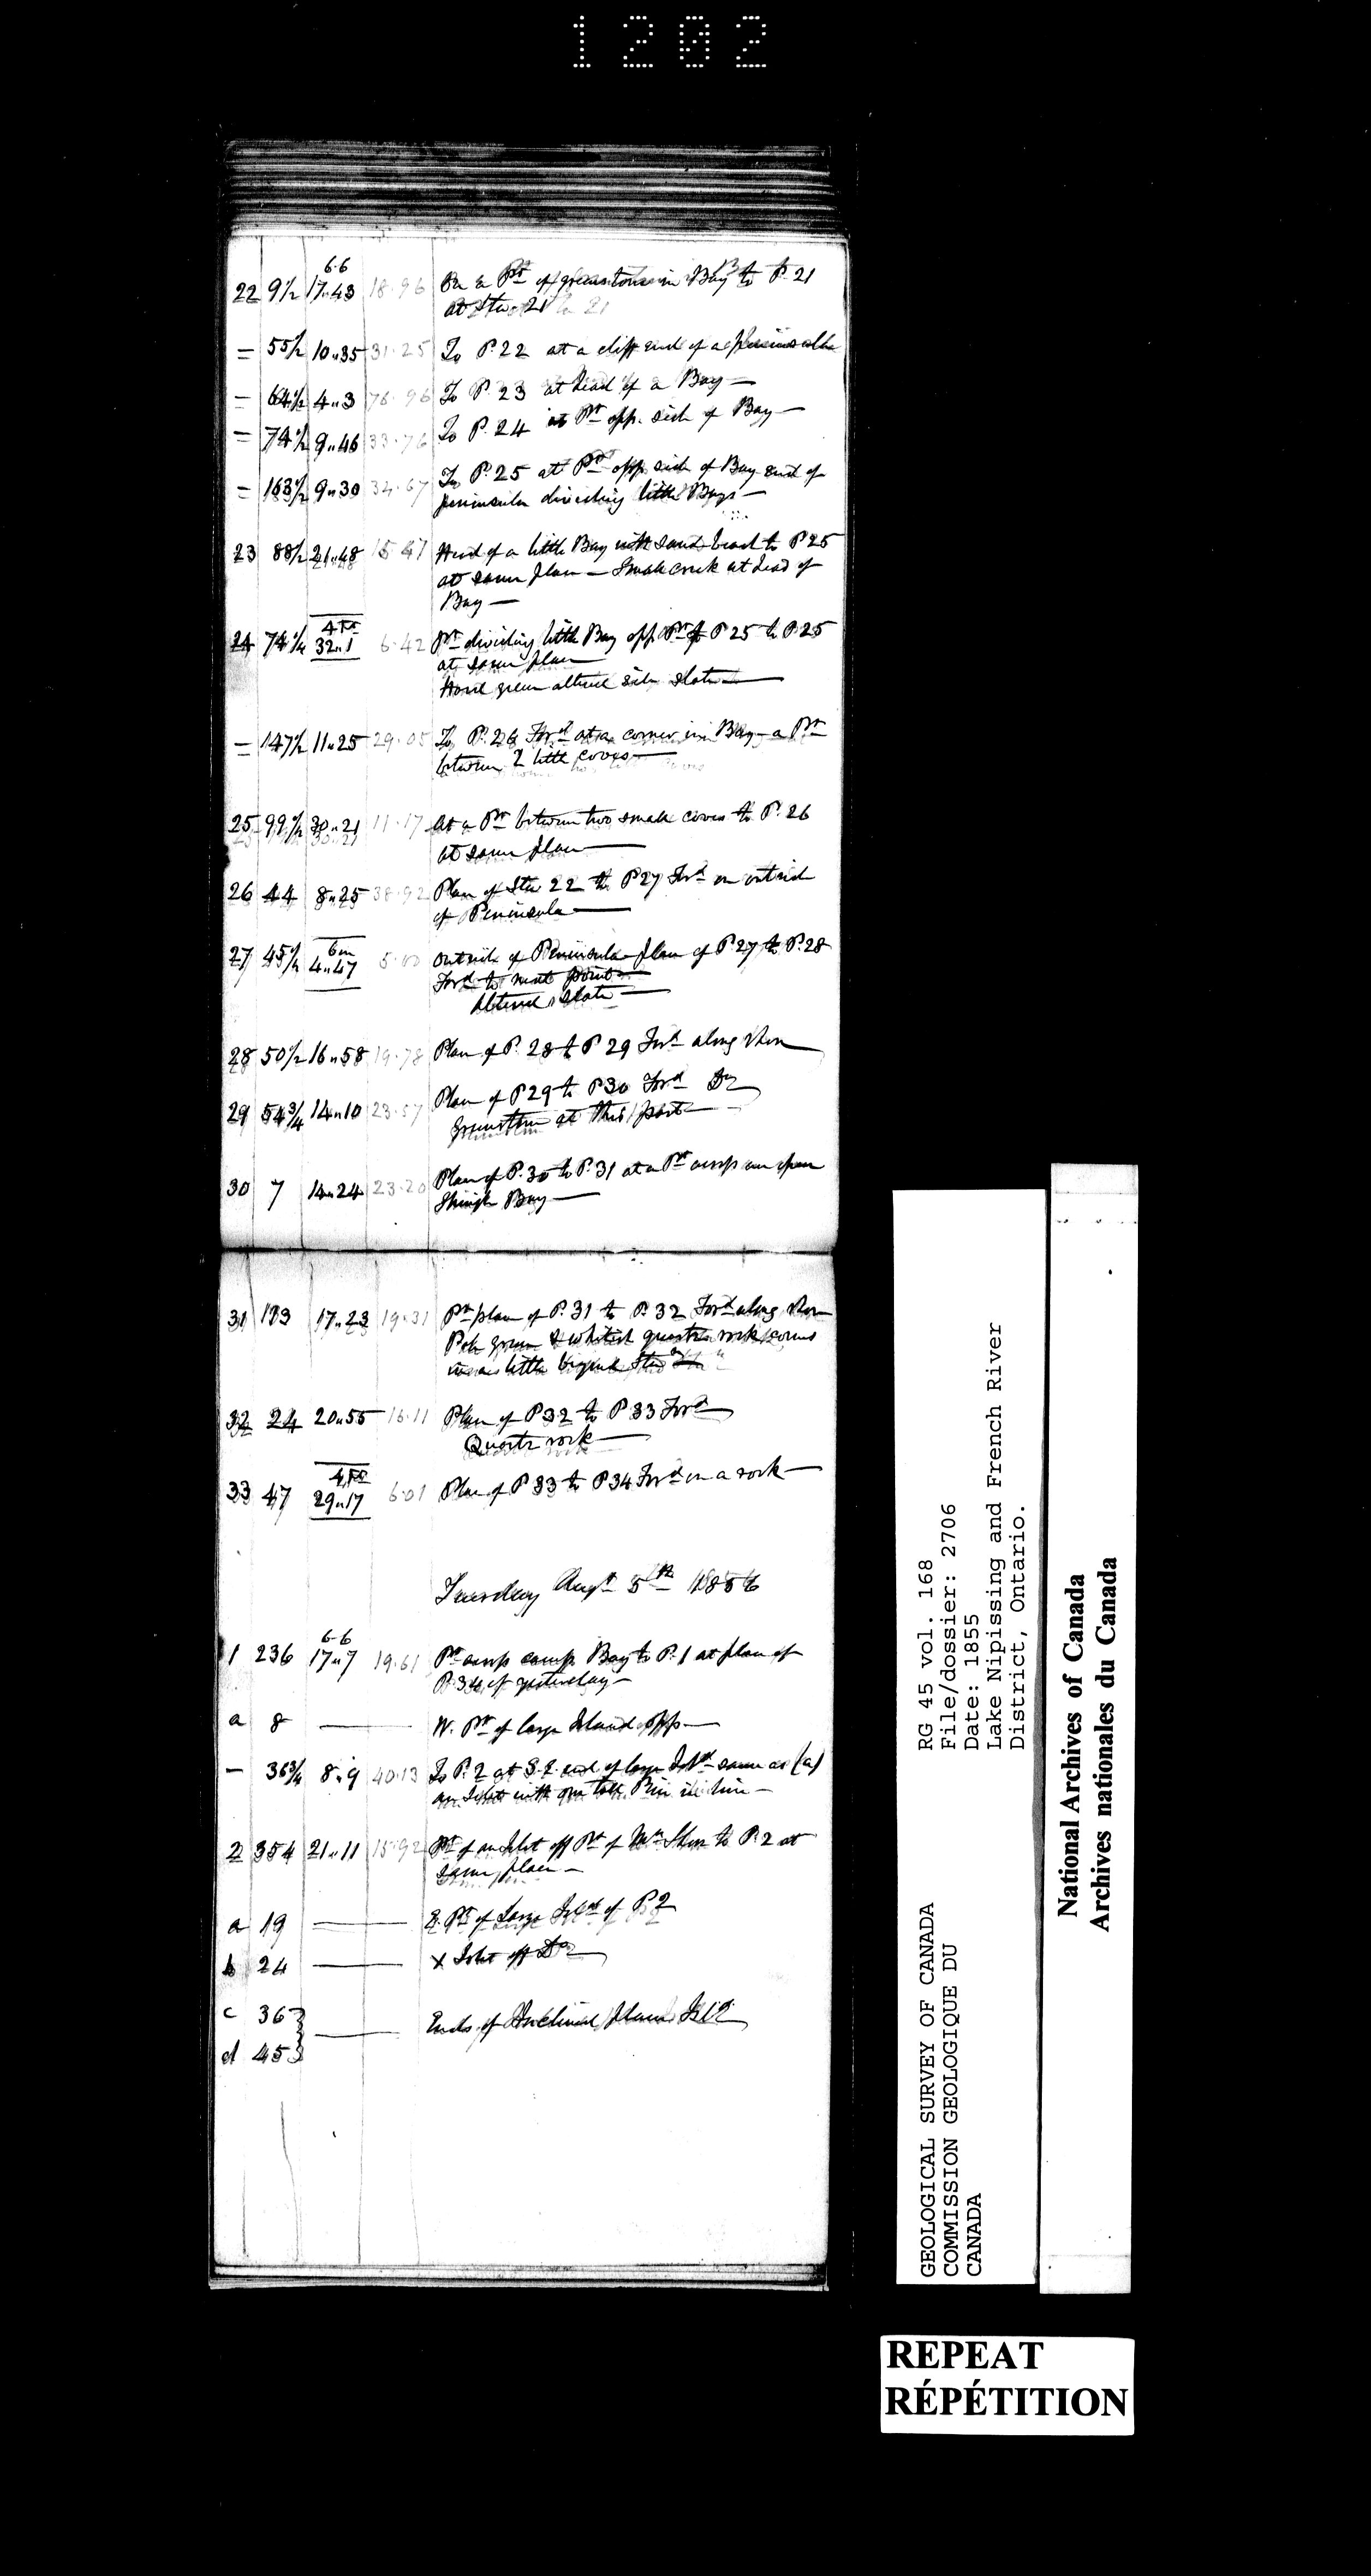 1202
6·6
22 9½ 17„43 18·96 On a Pt of greenstone in Bay to P. 21
at Sta. 21
= 55½ 10„35 31·25 To P. 22 at a cliff end of a peninsula
— 64½ 4„3 76·96 To P. 23 at head of a Bay —
= 74½ 9„46 33·76 To P. 24 at Pt opp. side of Bay —
= 163½ 9„30 34·67 To P. 25 at Pt opp side of Bay end of
peninsula dividing little Bays —
23 88½ 21„48 15·47 Head of a little Bay with sand beach to P 25
at same place — Small creek at head of
Bay —
4 Ft
24 74½ 32„1 6·42 Pt dividing little Bay opp Pt of P 25 to P. 25
at same place
Hard green altered slate —
— 147½ 11„25 29·05 To P. 26 Ford at a corner in Bay — a Pt
between 2 little coves —
25 99½ 30„21 11·17 At a Pt between two small coves to P. 26
at same place —
26 44 8„25 38·92 Place of Sta 22 to P 27 Ford on outside
of Peninsula —
6 m
27 45½ 4„47 5·00 outside of Peninsula place of P. 27 to P. 28
Ford to next point —
Altered slate —
28 50½ 16„58 19·78 Place of P. 28 to P 29 Ford along shore
29 54¾ 14„10 23·57 Place of P 29 to P 30 Ford Do
Greenstone at this part —
30 7 14„24 23·20 Place of P. 30 to P. 31 at a Pt across an open
Shingle Bay —
31 113 17„23 19·31 Pt place of P. 31 to P. 32 Ford along shore
Pale green & whitish quartz rock comes
in a little beyond Sta
32 24 20„55 16·11 Place of P 32 to P 33 Ford
Quartz rock —
4 Ft
33 47 29„17 6·01 Place of P 33 to P 34 Ford on a rock —
Tuesday Augt 5th 1856
6·6
1 236 17„7 19·61 Pt across camp Bay to P. 1 at place of
P. 34 of yesterday —
a 8 — W. Pt of large Island opp —
— 36¾ 8„9 40·13 To P. 2 at S.E. end of large Isld same as (a)
an Islet with one tall Pine in line —
2 354 21„11 15·92 Pt of an Islet off Pt of Mn Shore to P. 2 at
same place —
a 19 — E. Pt of Large Isld of P 2
b 24 — x Islet off Do
c 36 — Ends of
d 45
GEOLOGICAL SURVEY OF CANADA
COMMISSION GEOLOGIQUE DU
CANADA
RG 45 vol. 168
File/dossier: 2706
Date: 1855
Lake Nipissing and French River
District, Ontario.
National Archives of Canada
Archives nationales du Canada
REPEAT
RÉPÉTITION